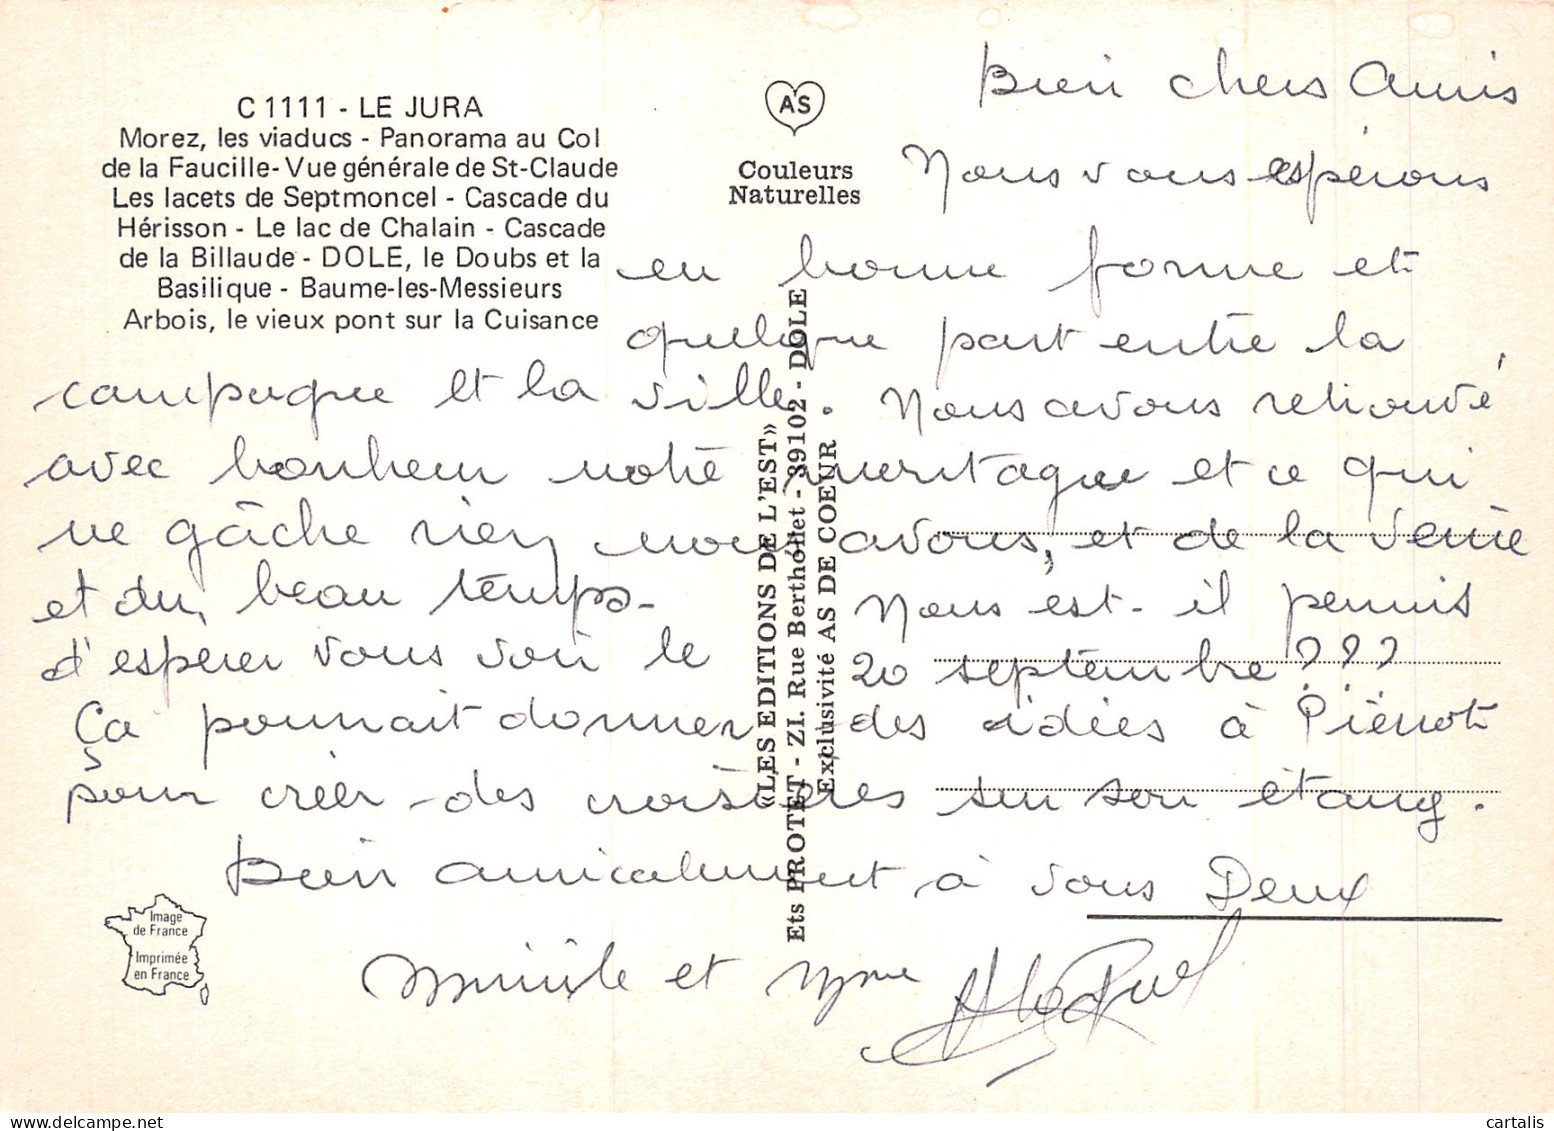 C 1111 - LE JURA
Morez, les viaducs - Panorama au Col
de la Faucille - Vue générale de St-Claude
Les lacets de Septmoncel - Cascade du
Hérisson - Le lac de Chalain - Cascade
de la Billaude - DOLE, le Doubs et la
Basilique - Baume-les-Messieurs
Arbois, le vieux pont sur la Cuisance
AS
Couleurs
Naturelles
Bien chers Amis
Nous vous espérons
en bonne forme et
quelque part entre la
campagne et la ville. Nous avons retrouvé
avec bonheur notre montagne et ce qui
ne gâche rien nous avons, et de la
et du beau temps. Nous est-il permis
d'espérer vous voir le 20 septembre ???
Ça pourrait donner des idées à Pierrot
pour créer des croisières sur son étang.
Bien amicalement à vous Deux
et Mme
«LES EDITIONS DE L'EST»
Ets PROTET - ZI. Rue Berthollet - 39102 - DOLE
Exclusivité AS DE COEUR
Image
de France
Imprimée
en France
cartalis